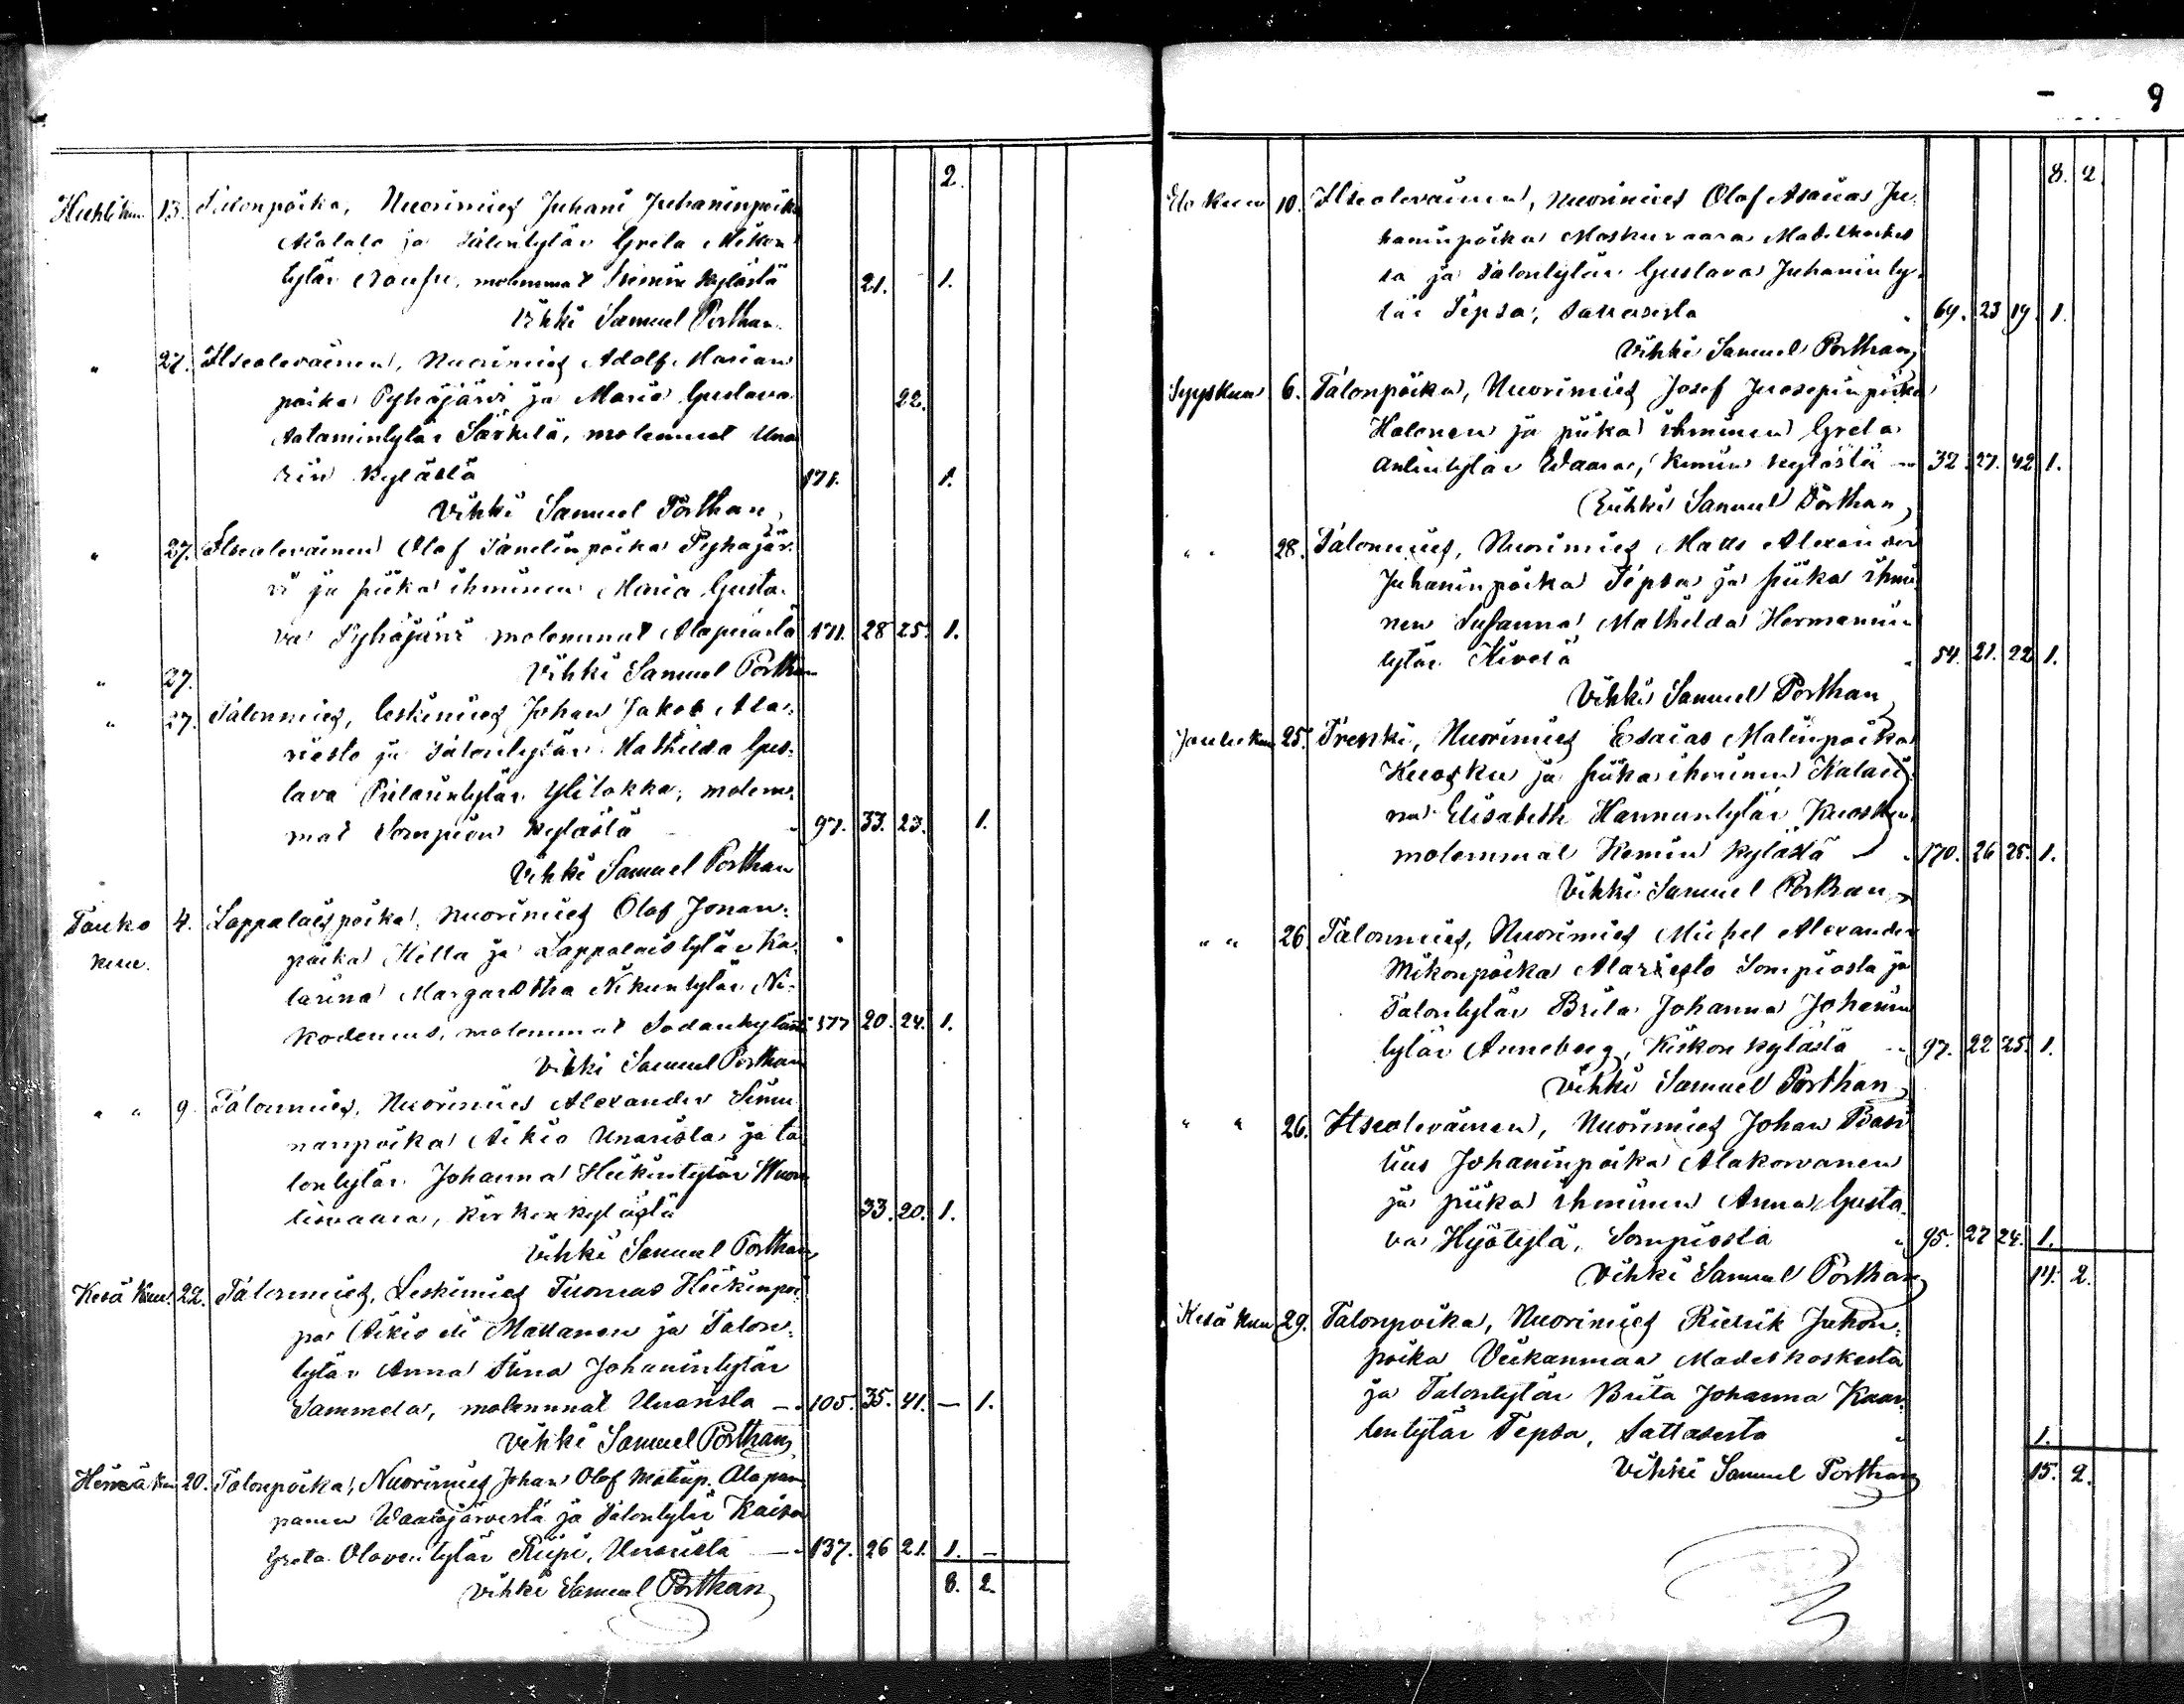 2.
Huhtikuu 13. Talonpoika, Nuorimies Juhani Juhaninpoika
ja Talontytär Greta Mikon
tytär molemmat Kemin kylästä 21. 1.
Vihki Samuel Porthan.
" 27. Itseeleväinen, Nuorimies Adolf Marian
poika Pyhäjärvi ja Maria Gustava 22.
Aatamintytär Särkelä, molemmat Una
rin kylästä 171. 1.
Vihki Samuel Porthan
" 27. Itseeleväinen Olof Tanelinpoika Pyhäjär
vi ja piika ihminen Maria Gusta-
va Pyhäjärvi molemmat Alaperästä 171. 28 25. 1.
" 27. Vihki Samuel Porthan
" 27. Talonmies, leskimies Johan Jakob Ala-
riesto ja Talontytär Mathilda Gus-
tava Pietarintytär Ylitokka, molem-
mat Sompion kylästä " 97. 33. 23. 1.
Vihki Samuel Porthan
Touko 4. Lappalaispoika, nuorimies Olof Jonan-
kuu. poika Hetta ja Lappalaistytär Ka-
tarina Margaretha Nikuntytär Ni-
kodemus, molemmat Sodankylästä 177 20. 24. 1.
Vihki Samuel Porthan
" " 9. Talonmies, Nuorimies Alexander Simu
nanpoika Aikio Unarista ja ta
lontytär Johanna Heikintytär Kuos
tisvaara, Kirkonkylästä 33. 20. 1.
Vihki Samuel Porthan
Kesä Kuu. 22. Talonmies, Leskimies Tuomas Heikinpoi-
pa Aikio eli Mattanen ja Talon-
tytär Anna Stina Johanintytär
Sammela, molemmat Unarista — " 105. 35. 41. — 1.
Vihki Samuel Porthan
Heinä kuu 20. Talonpoika, Nuorimies Johan Olof Matinp. Alapan
panen Waalajärvestä ja Talontytär Kaisa
Greta Olaventytär Riipi, Unarista — " 137. 26 21. 1. —
Vihki Samuel Porthan 8. 2.
9
8. 2
Elo kuu 10. Itseeleväinen, Nuorimies Olof Asarias Ju-
haninpoika Moskuvaara Madetkoskes
ta ja Talontytär Gustava Juhaninty-
tär Tepsa, Sattasesta " 69. 23 19. 1.
Vihki Samuel Porthan
Syyskuu 6. Talonpoika, Nuorimies Josef Juosepinpoika
Halonen ja piika ihminen Greta
Antintytär Waara, Kemin kylästä " 32. 27. 42 1.
Vihki Samuel Porthan
" " 28. Talonmies, Nuorimies Matts Alexander
Juhaninpoika Tepsa ja piika ihmi
nen Susanna Mathilda Hermannin
tytär Kivelä " 54. 21. 22 1.
Vihki Samuel Porthan
Joulu Kuu 25. Trenki, Nuorimies Esaias Matinpoika
Kuosku ja piika ihminen Katarii
na Elisabeth Hannuntytär Kuosku
molemmat Kemin kylästä " 170. 26 25. 1.
Vihki Samuel Porthan
" " 26. Talonmies, Nuorimies Michel Alexander
Mikonpoika Alariesto Sompiosta ja
Talontytär Brita Johanna Johanin
tytär Anneberg, Kirkon kylästä " 97. 22 25. 1.
Vihki Samuel Porthan
" " 26. Itseeleväinen, Nuorimies Johan Basi
lius Johaninpoika Alakorvanen
ja piika ihminen Anna Gusta-
va Hyötylä, Sompiosta " 95. 27 24. 1.
Vihki Samuel Porthan 14. 2.
Kesä kuu 29. Talonpoika, Nuorimies Riehrik Juhon-
poika Viikanmaa Madetkoskesta
ja Talontytär Brita Johanna Kaar-
lentytär Tepsa, Sattasesta " 1.
Vihki Samuel Porthan 15. 2.